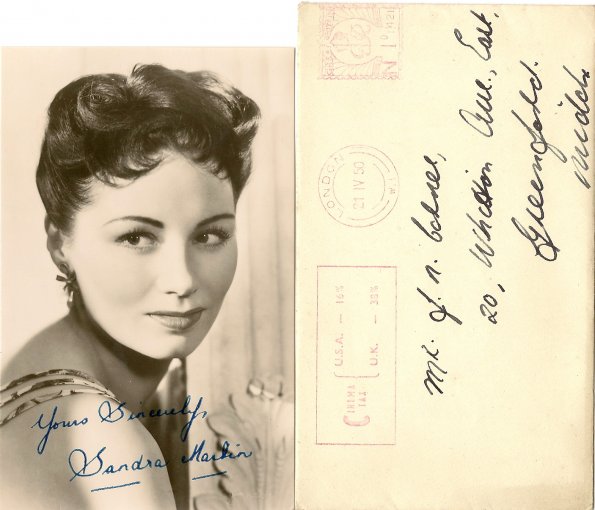 Yours Sincerely,
Sandra Martin
Mr. J. N.
20, Whitton Ave., East,
Greenford.
Middx
LONDON
21 IV 50
CINEMA TAX
U.S.A. — 16%
U.K. — 38%